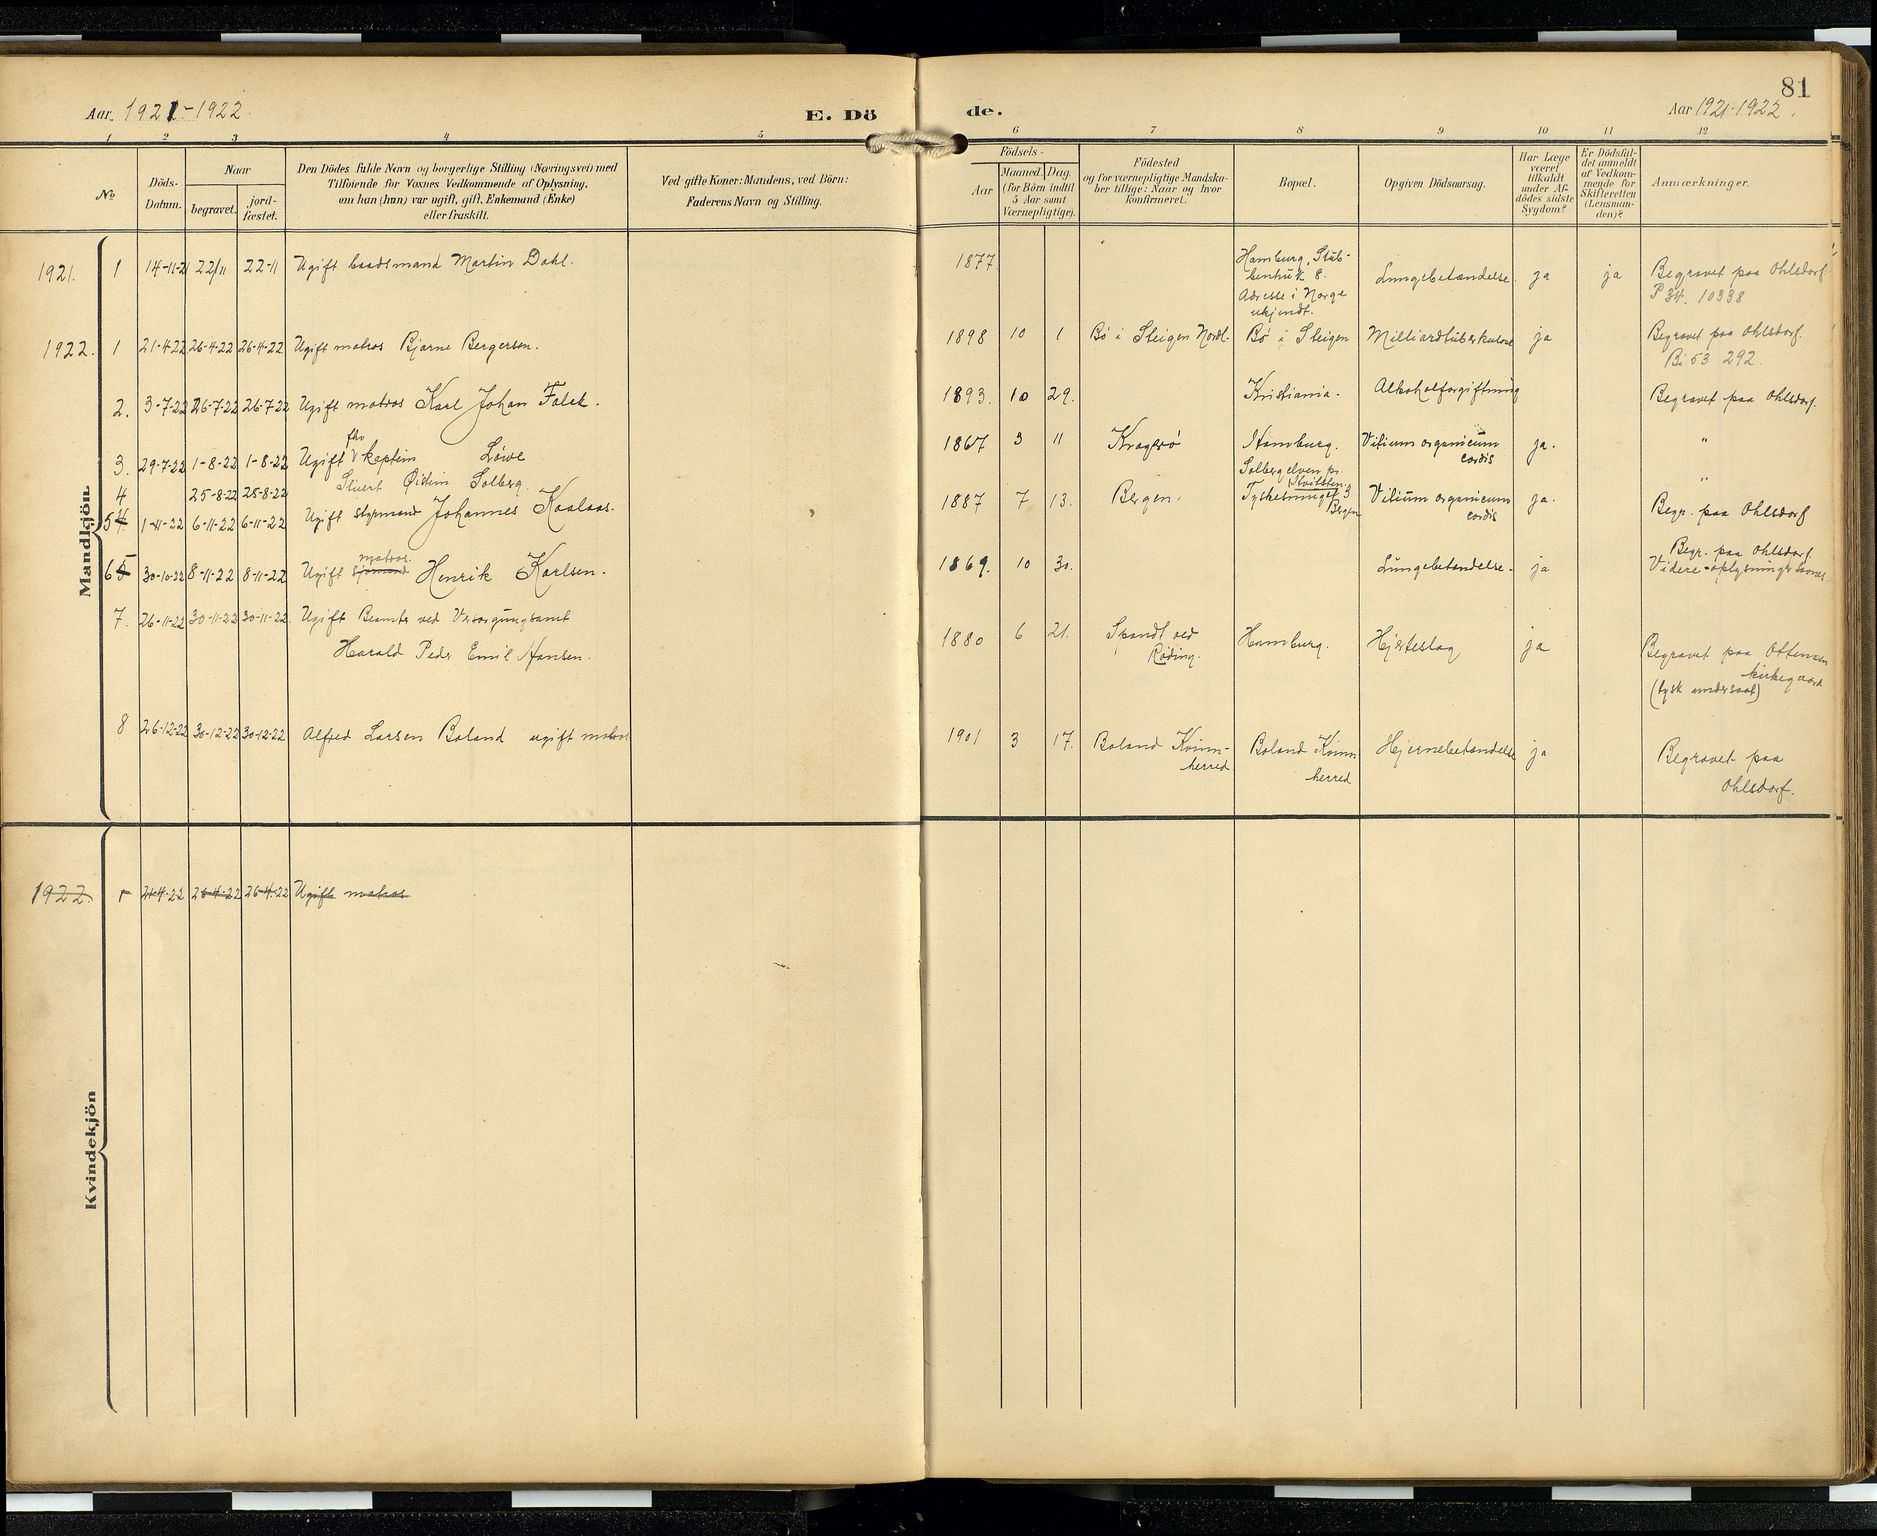 81
Aar 1921-1922.
E. Dö
de.
Aar 1921-1922.
1 2 3 4 5 6 7 8 9 10 11 12
No
Döds-
Datum.
Naar
begravet.
jord-
fæstet.
Den Dödes fulde Navn og borgerlige Stilling (Næringsvei) med
Tilföiende for Voxnes Vedkommende af Oplysning,
om han (hun) var ugift, gift, Enkemand (Enke)
eller fraskilt.
Ved gifte Koner: Mandens, ved Börn:
Faderens Navn og Stilling.
Födsels-
Aar
Maaned. Dag.
(for Börn indtil
5 Aar samt
Værnepligtige).
Födested
og for værnepligtige Mandska-
ber tillige: Naar og hvor
konfirmeret.
Bopæl.
Opgiven Dödsaarsag.
Har Læge
været
tilkaldt
under Af-
dödes sidste
Sygdom?
Er Dödsfal-
det anmeldt
af Vedkom-
mende for
Skifteretten
(Lensman-
den)?
Anmærkninger.
Mandkjön.
1921. 1 14-11-21 22/11 22-11 Ugift baadsmand Martin Dahl. 1877. Hamburg, Stub-
benhuk 8.
Adresse i Norge
ukjendt. Lungebetændelse. ja ja Begravet paa Ohlsdorf
P 34. 10338
1922. 1 21-4-22 26-4-22 26-4-22 Ugift matros Bjarne Bergersen. 1898 10 1 Bö i Steigen Nordl. Bö i Steigen Milliardtuberkulose ja Begravet paa Ohlsdorf.
Bi 53 292.
2. 3-7-22 26-7-22 26-7-22 Ugift matros Karl Johan Falck. 1893. 10 29. Kristiania. Alkoholforgiftning Begravet paa Ohlsdorf.
3. 29-7-22 1-8-22 1-8-22 Ugift fhv kaptein Löwe 1867 3 11 Kragerö Hamburg. Vitium organicum
cordis ja. "
4 25-8-22 25-8-22 Stuert Öistein Solberg. Solbergelven pr.
"
5 4. 1-11-22 6-11-22 6-11-22 Ugift styrmand Johannes Kaalaas. 1887 7 13. Bergen. 3
Bergen Vitium organicum
cordis ja. Begr. paa Ohlsdorf
6 5 30-10-22 8-11-22 8-11-22 Ugift sjömand matros Henrik Karlsen. 1869. 10 30. Lungebetændelse. ja Begr. paa Ohlsdorf
Videre oplysninger savnes.
7. 26-11-22 30-11-22 30-11-22 Ugift Beamter ved Versorgungsamt
Harald Peder Emil Hansen. 1880 6 21. Spandt ved
Röding. Hamburg. Hjerteslag ja Begravet paa Ottensen
kirkegaard
(tysk undersaat)
8 26-12-22 30-12-22 30-12-22 Alfred Larsen Boland ugift matros 1901 3 17. Boland Kvinn-
herred Boland Kvinn
herred Hjernebetændelse ja Begravet paa
Ohlsdorf.
Kvindekjön
1922. 1 21-4-22 26-4-22 26-4-22 Ugift matros